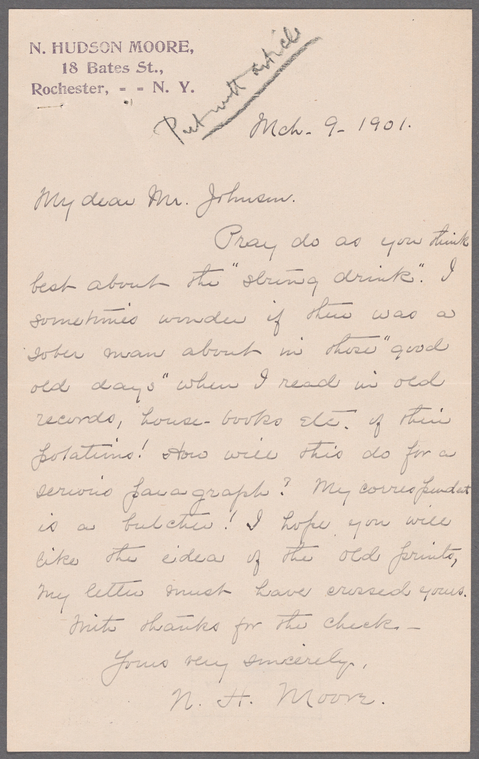 N. HUDSON MOORE,
18 Bates St.,
Rochester, - - N. Y.
Put with article
Mch- 9- 1901.
My dear Mr. Johnson.
Pray do as you think
best about the "strong drink". I
sometimes wonder if there was a
sober man about in those "good
old days" when I read in old
records, house-books etc. of their
potations! How will this do for a
serious paragraph? My correspondent
is a butcher! I hope you will
like the idea of the old prints,
my letter must have crossed yours.
With thanks for the check-
Yours very sincerely,
N. H. Moore.